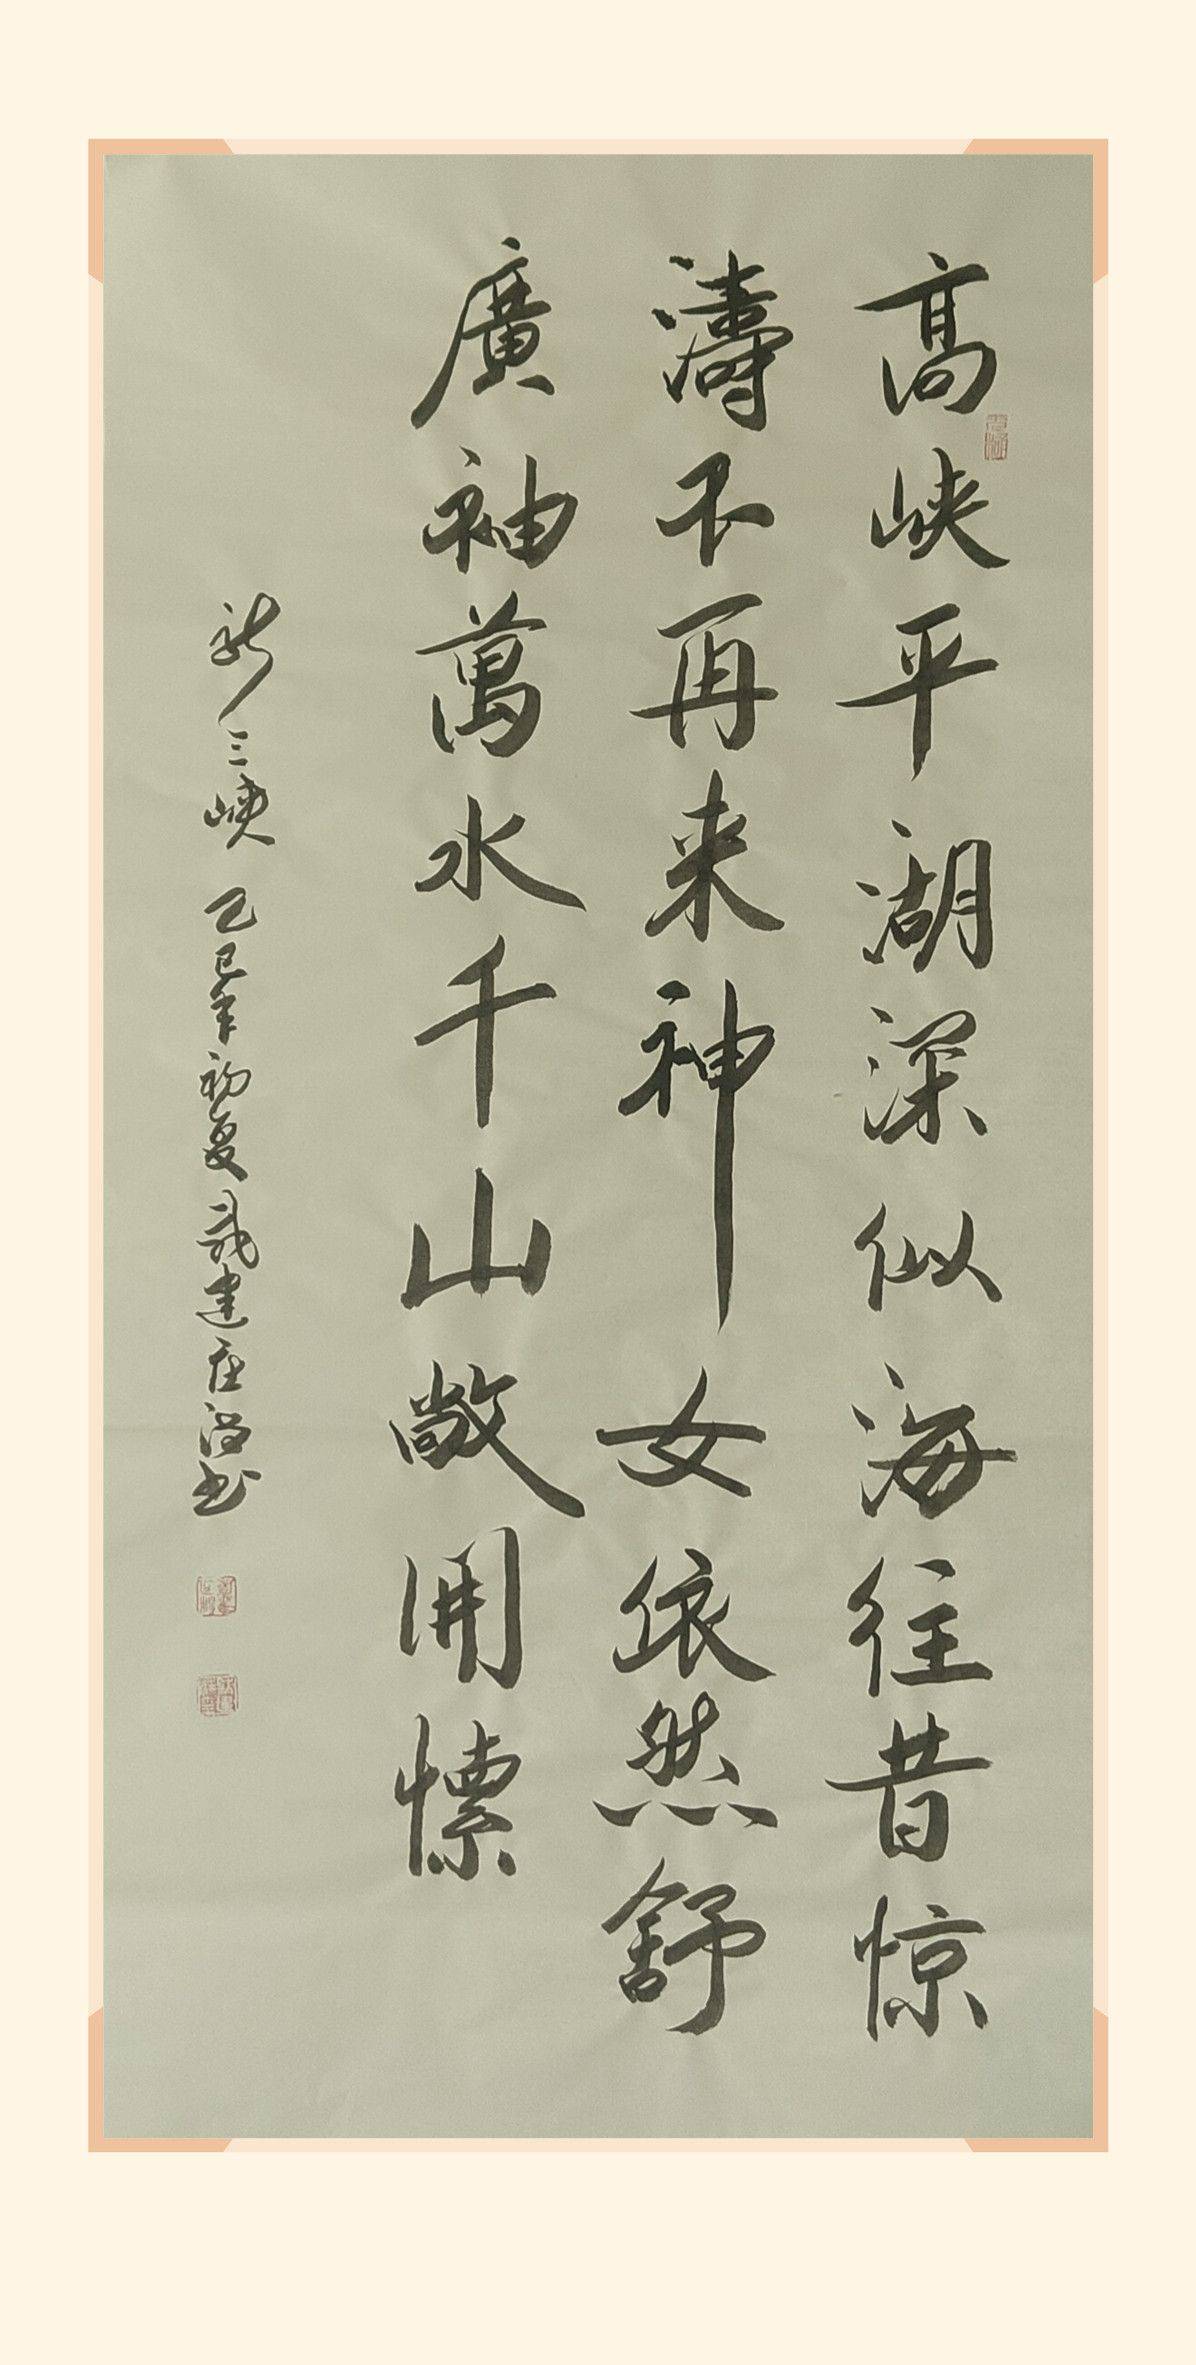 高峡平湖深似海往昔惊
濤不再来神女依然舒
廣袖萬水千山敞開愫
新三峡 乙巳年初夏 建庄 书